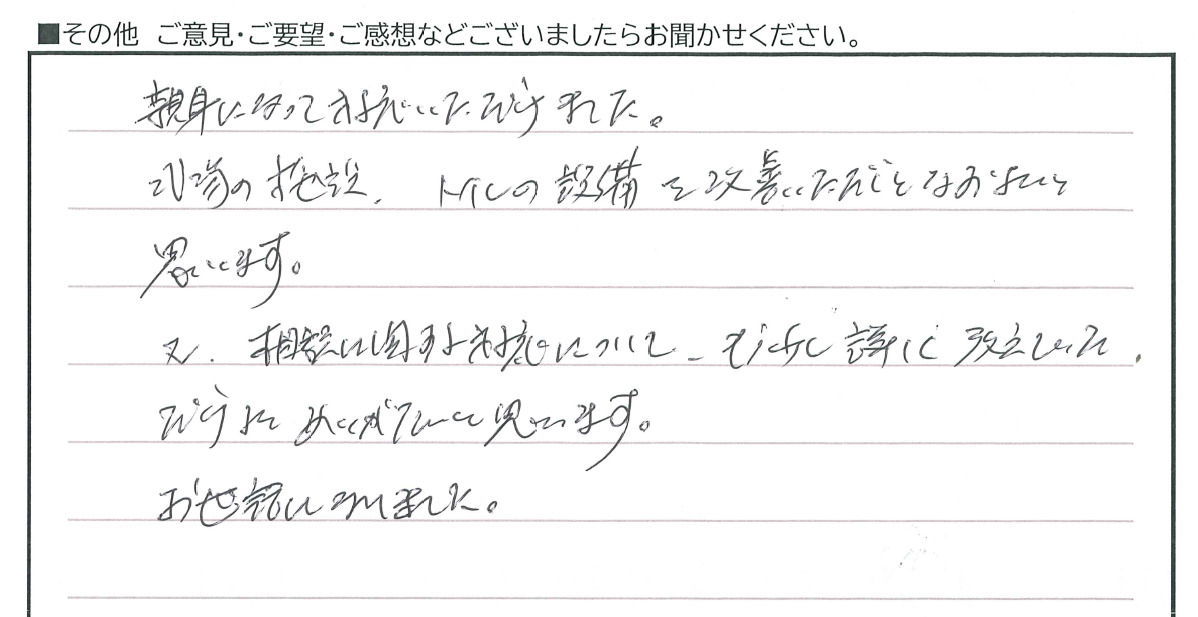 ■その他 ご意見・ご要望・ご感想などございましたらお聞かせください。
親身になって対応いただけました。
の施設、トイレの設備を改善いただくとなおよいと
思います。
又、相談に関する対応について、もう少し詳しく教えていた
だけるとありがたいと思います。
お世話になりました。